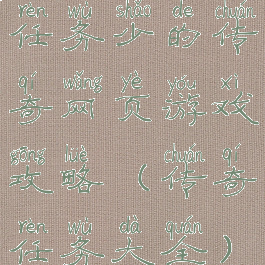 rèn wù shǎo de chuán
任务少的传
qí wǎng yè yóu xì
奇网页游戏
gōng lüè chuán qí
攻略（传奇
rèn wù dà quán
任务大全）